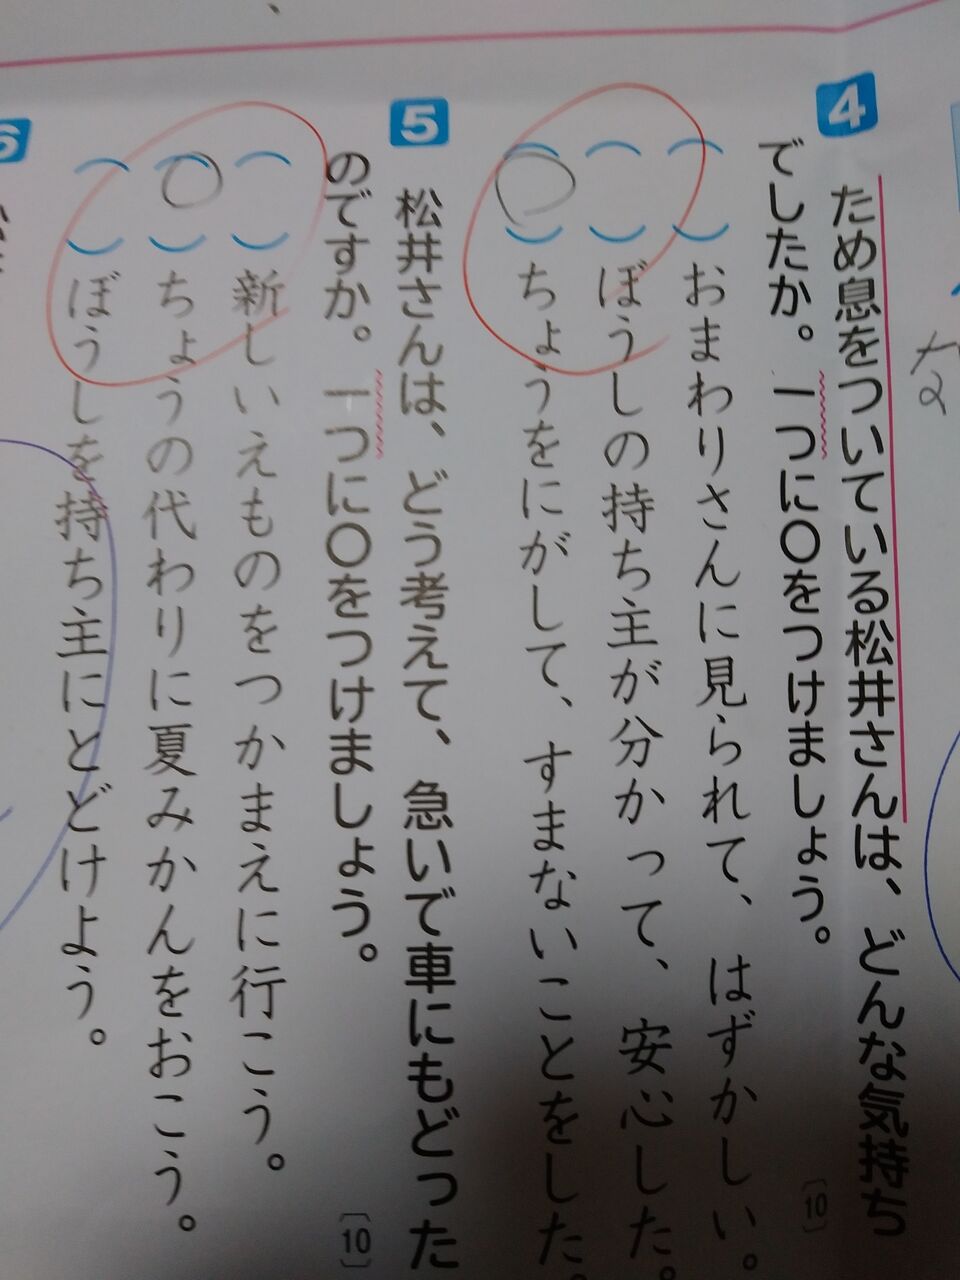 な
4
ため息をついている松井さんは、どんな気持ち
でしたか。一つに〇をつけましょう。
〔10〕
( )おまわりさんに見られて、はずかしい。
( )ぼうしの持ち主が分かって、安心した。
(〇)ちょうをにがして、すまないことをした。
5
松井さんは、どう考えて、急いで車にもどった
のですか。一つに〇をつけましょう。
〔10〕
( )新しいえものをつかまえに行こう。
(〇)ちょうの代わりに夏みかんをおこう。
( )ぼうしを持ち主にとどけよう。
6